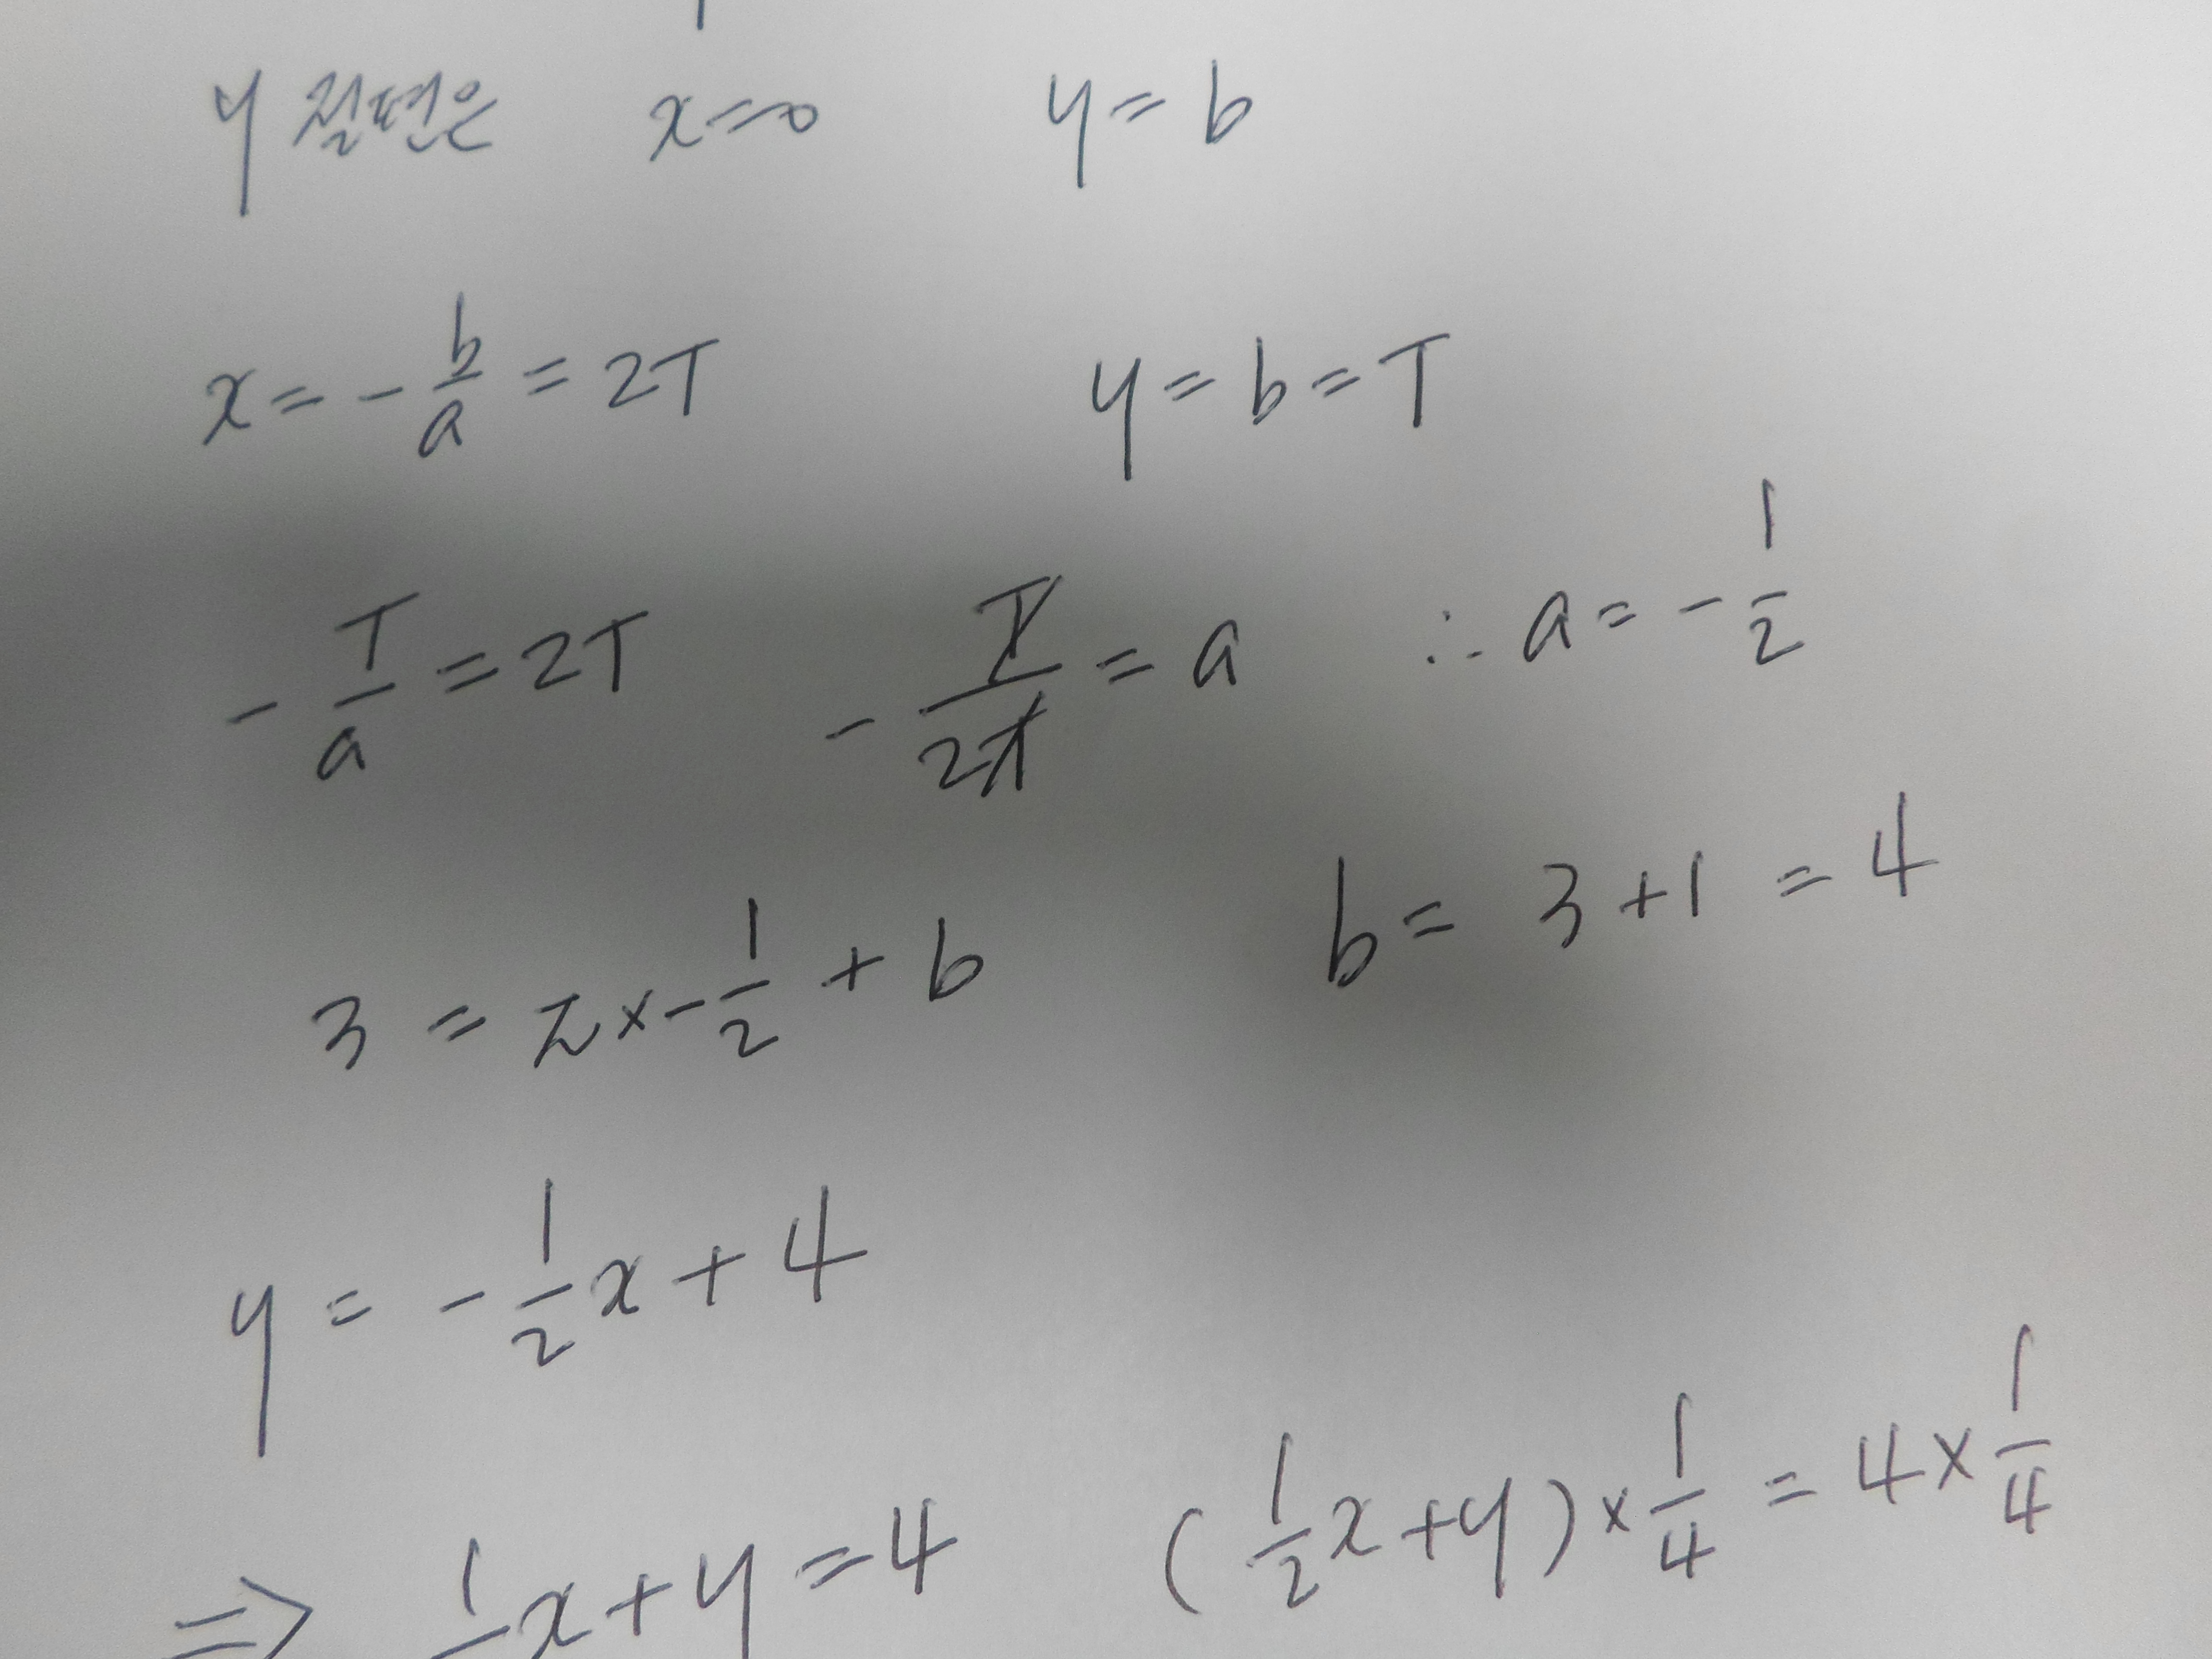 y 절편은 x=0 y=b
x = - b/a = 2T y = b = T
- T/a = 2T - T/2T = a ∴ a = - 1/2
3 = 2 × - 1/2 + b b = 3 + 1 = 4
y = - 1/2 x + 4
⇒ 1/ x + y = 4 ( 1/2 x + y ) × 1/4 = 4 × 1/4